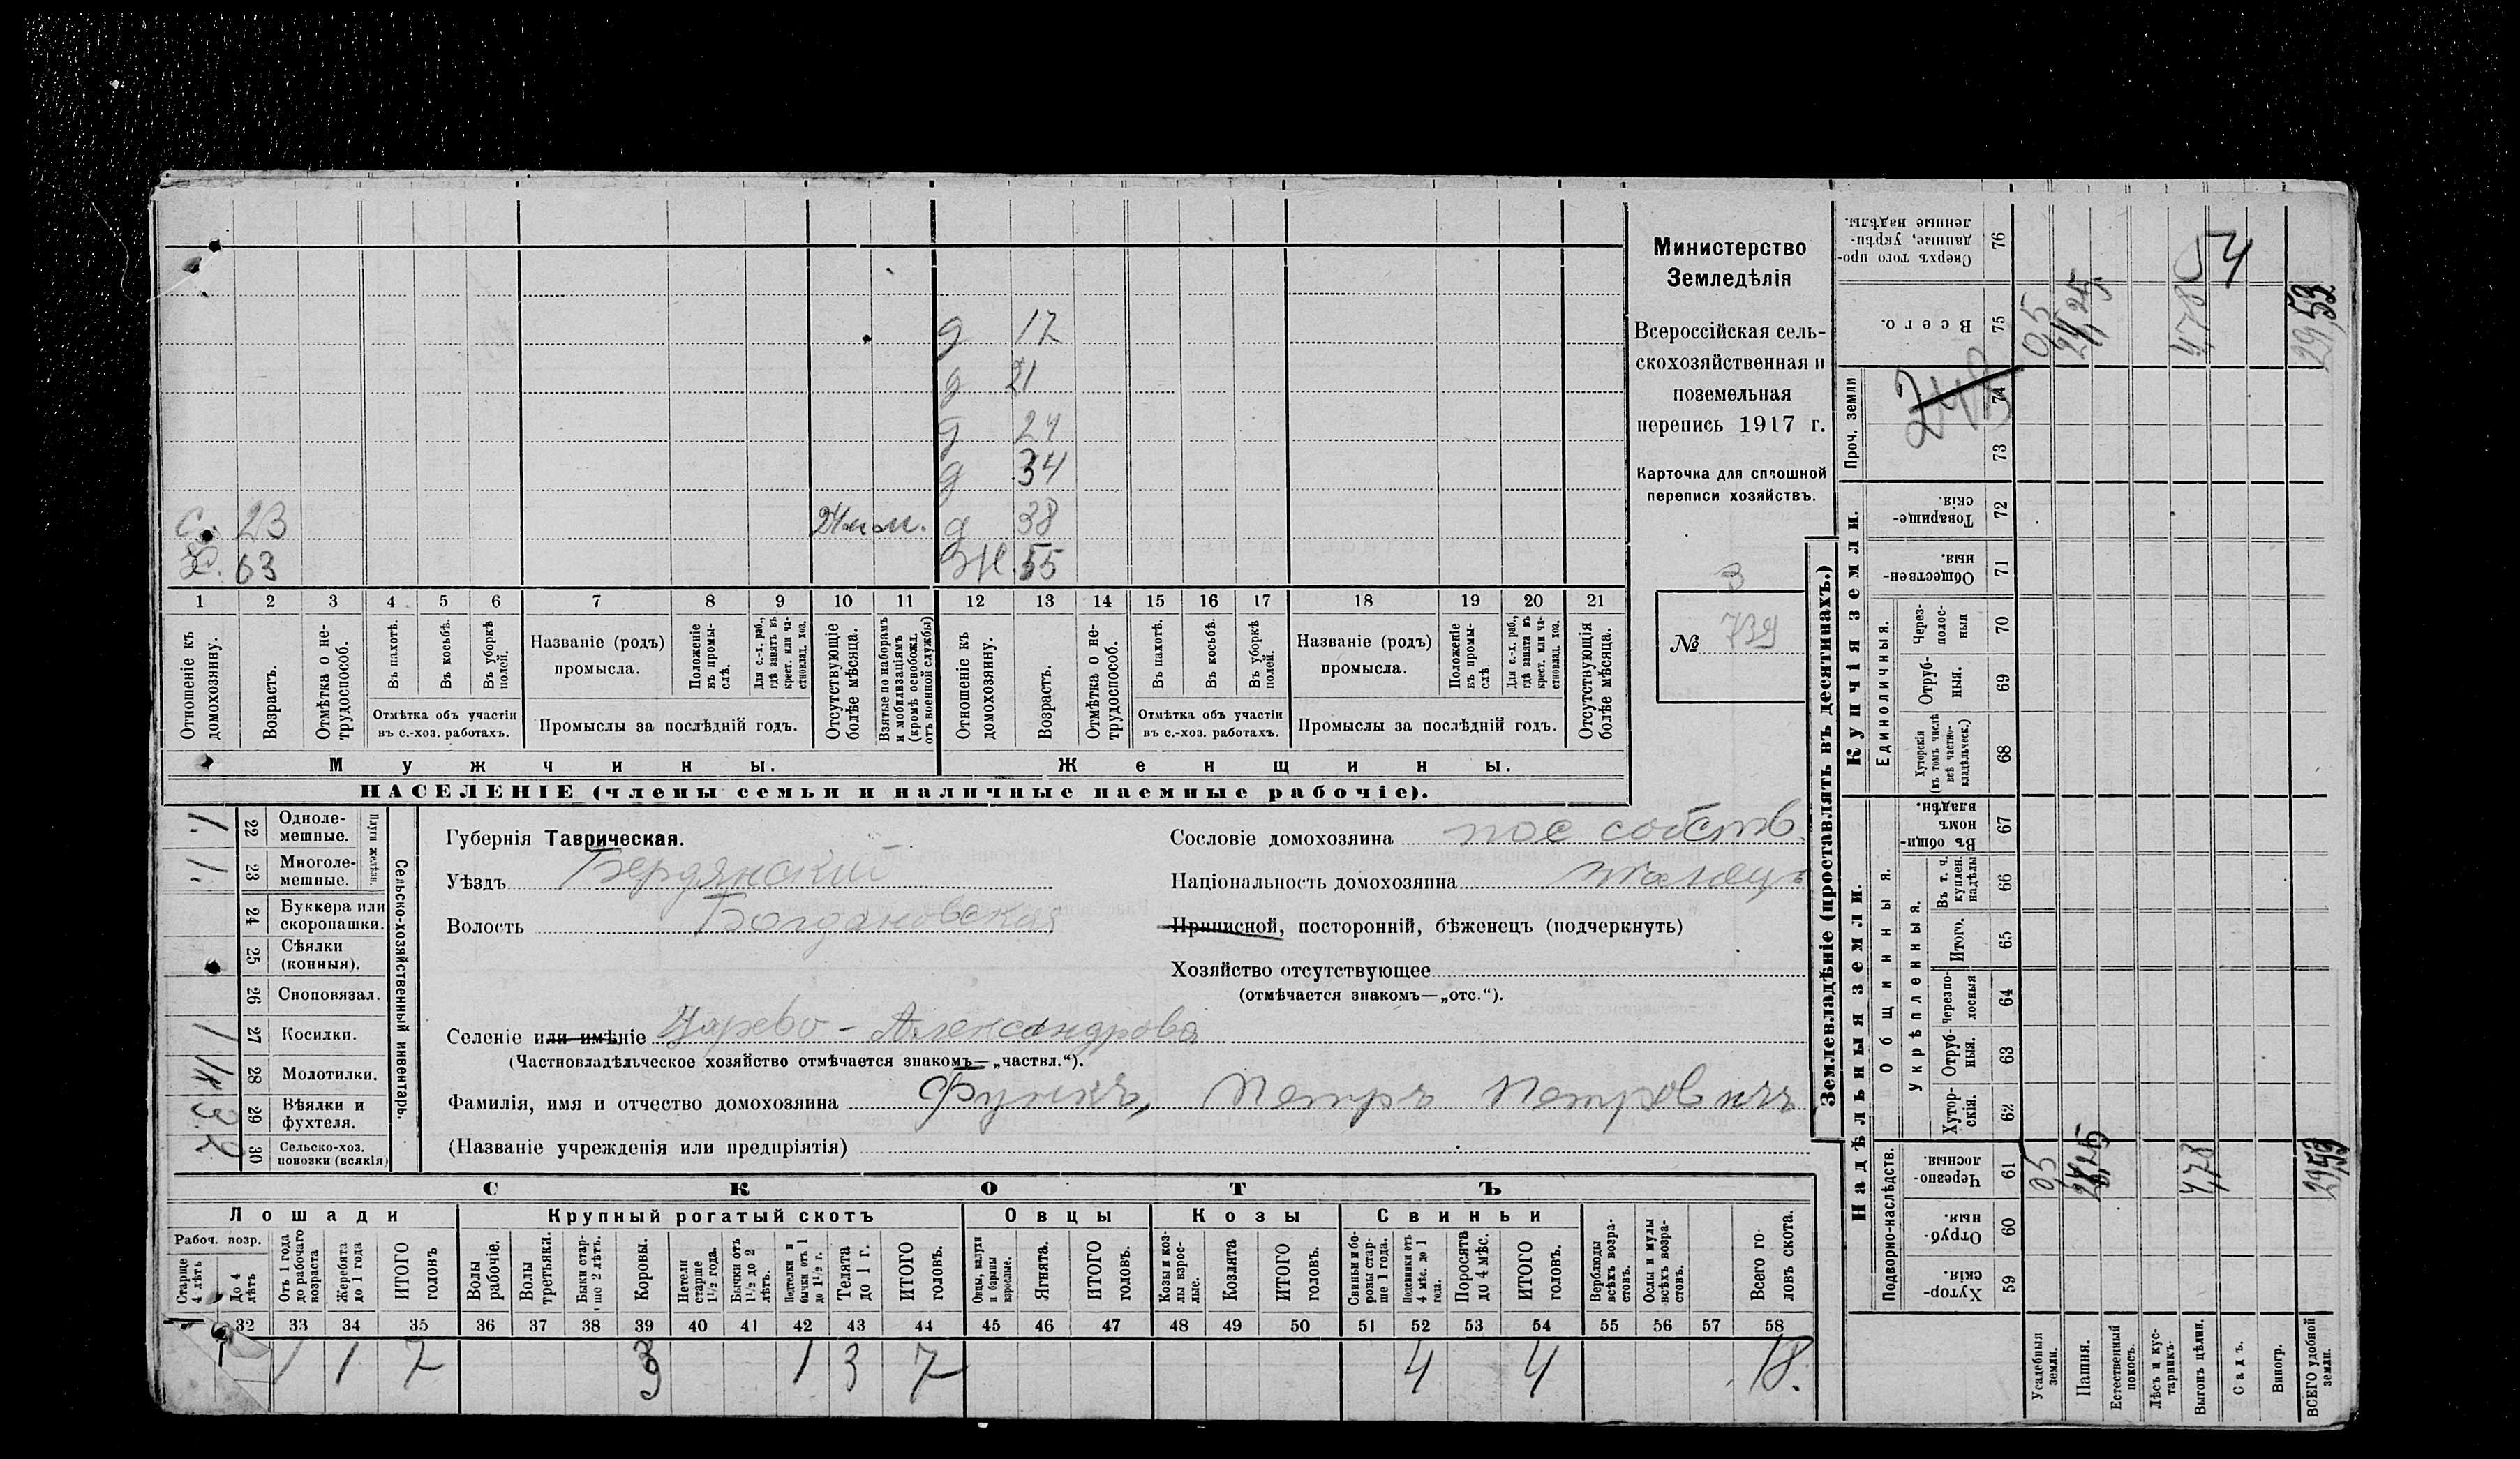 д 17
д 21
д 24
д 34
С. 23 24 м. д 38
Х. 63 Ж. 55
1 2 3 4 5 6 7 8 9 10 11 12 13 14 15 16 17 18 19 20 21
Отношеніе къ домохозяину.
Возрастъ.
Отмѣтка о не-
трудоспособ.
Въ пахотѣ.
Въ косьбѣ.
Въ уборкѣ полей.
Отмѣтка объ участіи
въ с.-хоз. работахъ.
Названіе (родъ)
промысла.
Положеніе въ промы-
слѣ.
Для с.-х. раб., гдѣ занятъ въ крест. или ча-
стновлад. хоз.
Промыслы за послѣдній годъ.
Отсутствующіе болѣе мѣсяца.
Взятые по наборамъ и мобилизаціямъ (кромѣ освобожд. отъ военной службы)
Отношеніе къ домохозяину.
Возрастъ.
Отмѣтка о не-
трудоспособ.
Въ пахотѣ.
Въ косьбѣ.
Въ уборкѣ полей.
Отмѣтка объ участіи
въ с.-хоз. работахъ.
Названіе (родъ)
промысла.
Положеніе въ промы-
слѣ.
Для с.-х. раб., гдѣ занятъ въ крест. или ча-
стновлад. хоз.
Промыслы за послѣдній годъ.
Отсутствующія болѣе мѣсяца.
Мужчины. Женщины.
НАСЕЛЕНІЕ (члены семьи и наличные наемные рабочіе).
Министерство
Земледѣлія
Всероссійская сель-
скохозяйственная и
поземельная
перепись 1917 г.
Карточка для сплошной
переписи хозяйствъ.
3
№ 739
1. 22 Одноле-
мешные.
1. 23 Многоле-
мешные.
Плуги желѣзн.
24 Буккера или
скоропашки.
25 Сѣялки
(конныя).
26 Сноповязал.
1 27 Косилки.
1к 28 Молотилки.
3 29 Вѣялки и
фухтеля.
2 30 Сельско-хоз.
повозки (всякія)
Сельско-хозяйственный инвентарь.
Губернія Таврическая.
Уѣздъ Бердянскій
Волость Богдановская
Селеніе или имѣніе Царево-Александрово
(Частновладѣльческое хозяйство отмѣчается знакомъ—„частвл.“).
Фамилія, имя и отчество домохозяина Функъ, Петръ Петровичъ
(Названіе учрежденія или предпріятія)
Сословіе домохозяина пос собств.
Національность домохозяина
Приписной, посторонній, бѣженецъ (подчеркнуть)
Хозяйство отсутствующее
(отмѣчается знакомъ—„отс.“).
СКОТЪ
Лошади Крупный рогатый скотъ Овцы Козы Свиньи
Рабоч. возр.
Старше 4 лѣтъ
До 4 лѣтъ
Отъ 1 года до рабочаго возраста
Жеребята до 1 года
ИТОГО головъ
Волы рабочіе.
Волы третьяки.
Быки стар-
ше 2 лѣтъ.
Коровы.
Нетели старше 1½ года.
Бычки отъ 1½ до 2 лѣтъ.
Подтелки и бычки отъ 1 до 1½ г.
Телята до 1 г.
ИТОГО головъ.
Овцы, валухи и бараны взрослые.
Ягнята.
ИТОГО головъ.
Козы и коз-
лы взрос-
лые.
Козлята
ИТОГО головъ.
Свиньи и бо-
ровы стар-
ше 1 года.
Подсвинки отъ 4 мѣс. до 1 года.
Поросята до 4 мѣс.
ИТОГО головъ.
Верблюды всѣхъ возра-
стовъ.
Ослы и мулы всѣхъ возра-
стовъ.
Всего го-
ловъ скота.
32 33 34 35 36 37 38 39 40 41 42 43 44 45 46 47 48 49 50 51 52 53 54 55 56 57 58
1 1 7 3 1 3 7 4 4 18.
Землевладѣніе (проставлять въ десятинахъ.)
Надѣльныя земли. Купчія земли. Проч. земли
Подворно-наслѣдств. Общинныя. Единоличныя.
Укрѣпленныя.
Сверхъ того про-
данные, укрѣп-
ленные надѣлы.
76
54
Всего.
75
0,5 24,25 4,78 29,53
74
73
Товарище-
скія.
72
Обществен-
ныя.
71
Через-
полос-
ныя
70
Отруб-
ныя.
69
Хуторскія (въ томъ числѣ всѣ частно-
владѣльческ.)
68
Въ общин-
номъ владѣн.
67
Въ т. ч. куплен. надѣлы
66
Итого.
65
Черезпо-
лосныя
64
Отруб-
ныя.
63
Хутор-
скія.
62
Черезпо-
лосныя.
61
0,5 24,25 4,78 29,53
Отруб-
ныя.
60
Хутор-
скія.
59
Усадебныя земли.
Пашня.
Естественный покосъ.
Лѣсъ и кус-
тарникъ.
Выгонъ цѣлин.
Садъ.
Виногр.
ВСЕГО удобной земли.